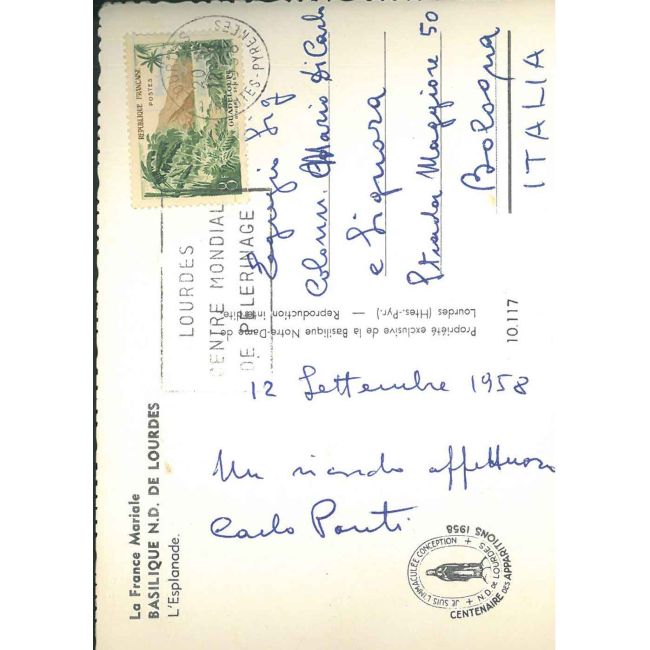 La France Mariale
BASILIQUE N.D. DE LOURDES
L'Esplanade.
12 Settembre 1958
Un ricordo affettuoso
Carlo Ponti
JE SUIS L'IMMACULÉE CONCEPTION + N.D DE LOURDES +
CENTENAIRE DES APPARITIONS 1958
Propriété exclusive de la Basilique Notre-Dame de
Lourdes (Htes.-Pyr.) — Reproduction interdite
10.117
LOURDES
CENTRE MONDIAL
DE PÈLERINAGE
REPUBLIQUE FRANÇAISE
POSTES
GUADELOUPE
8
LOURDES
HTES-PYRÉNÉES
Sig
Colonn. Mario Di Carlo
e Signora
Strada Maggiore 50
Bologna
ITALIA